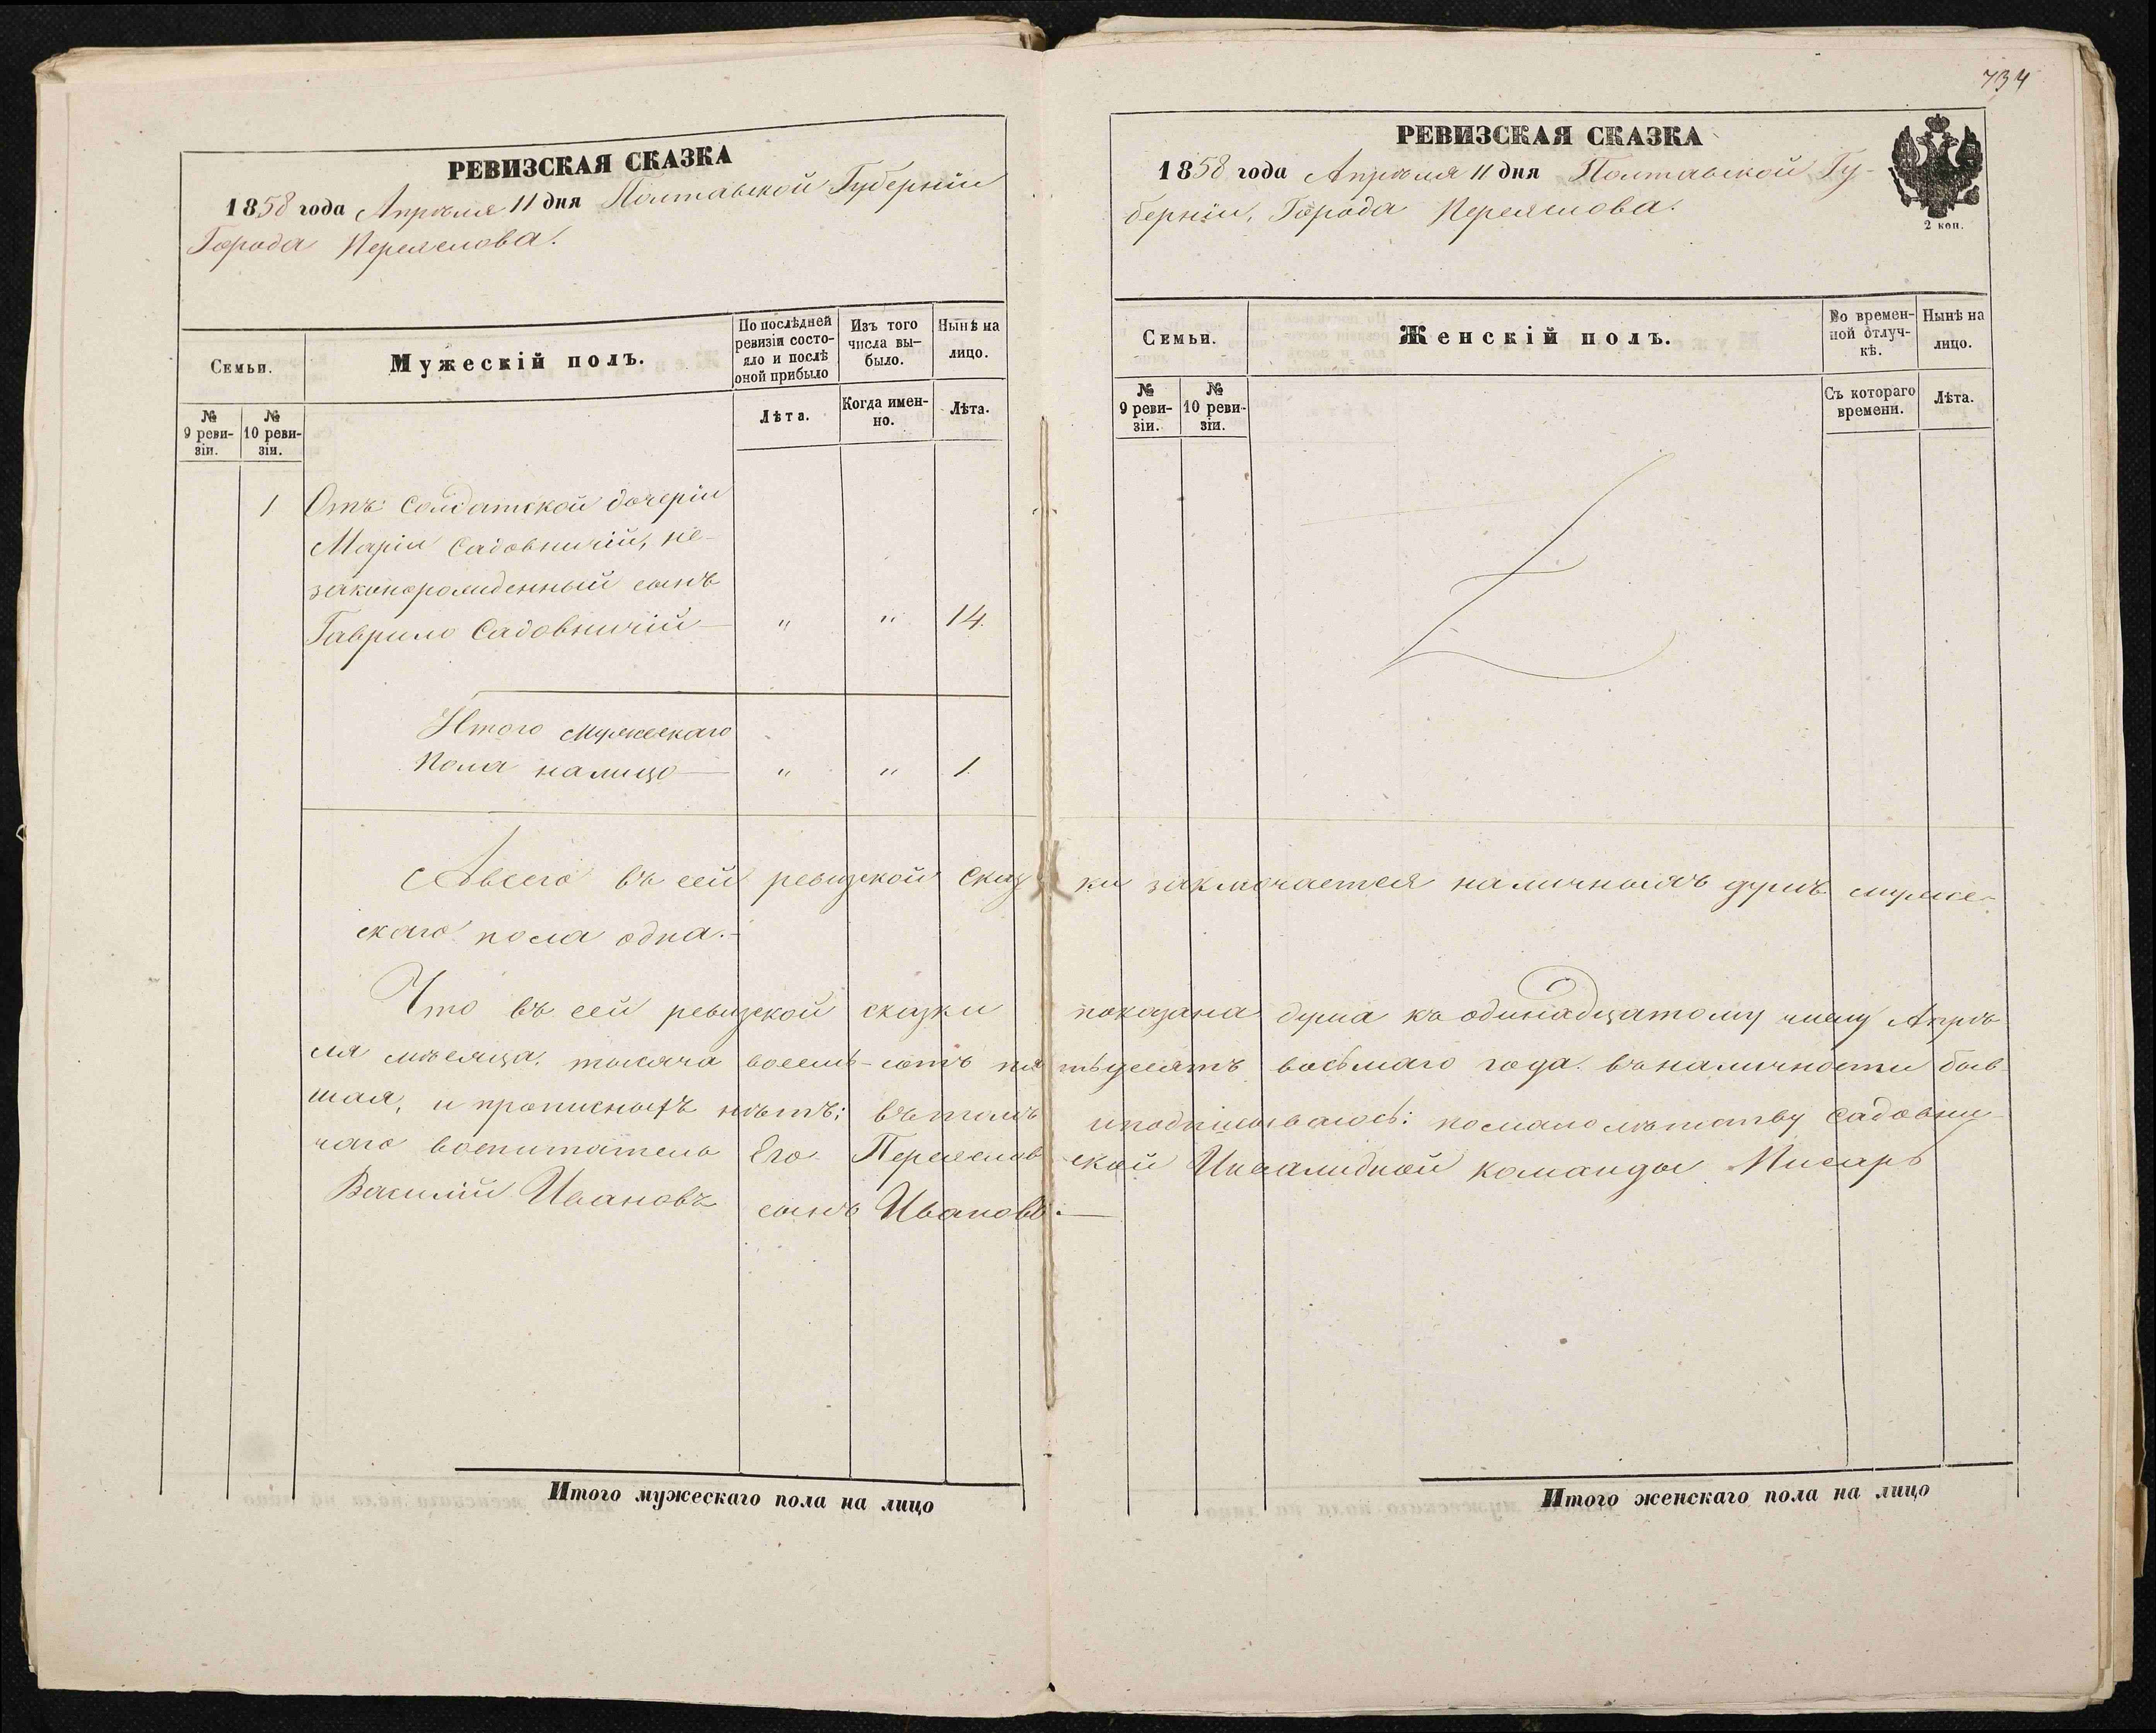 734
РЕВИЗСКАЯ СКАЗКА
1858 года Апрѣля 11 дня Полтавской Губерніи
Города Переяслова.
Семьи.
Мужескій полъ.
По послѣдней ревизіи состояло и послѣ оной прибыло
Изъ того числа вы-было.
Нынѣ на лицо.
№ 9 реви-зіи.
№ 10 реви-зіи.
Лѣта.
Когда имен-но.
Лѣта.
1 Отъ солдатской дочеріи
Маріи Садовничій, не-
законорожденный сынъ
Гаврило Садовничій — " " 14.
Итого мужескаго
Пола налицо — " " 1.
РЕВИЗСКАЯ СКАЗКА
1858 года Апрѣля 11 дня Полтавской Гу-
берніи, Города Переяслова.
2 коп.
Семьи.
Женскій полъ.
Во времен-ной отлуч-кѣ.
Нынѣ на лицо.
№ 9 реви-зіи.
№ 10 реви-зіи.
Съ котораго времени.
Лѣта.
Авсего въ сей ревизской сказки заключается наличныхъ душъ муже-
скаго пола одна.-
Что въ сей ревизской сказки показана душа къ одинадцатому числу Апрѣ
ля мѣсяца, тысяча восемь-сотъ пятьдесятъ восьмаго года въ наличности быв
шая, и прописныхъ нѣтъ; въ томъ и подписываюсь: помалолѣтству Садовни-
чаго воспитатель Его Переяславской Инвалидной команды Писарь
Василий Ивановъ сынъ Ивановъ.—
Итого мужескаго пола на лицо
Итого женскаго пола на лицо